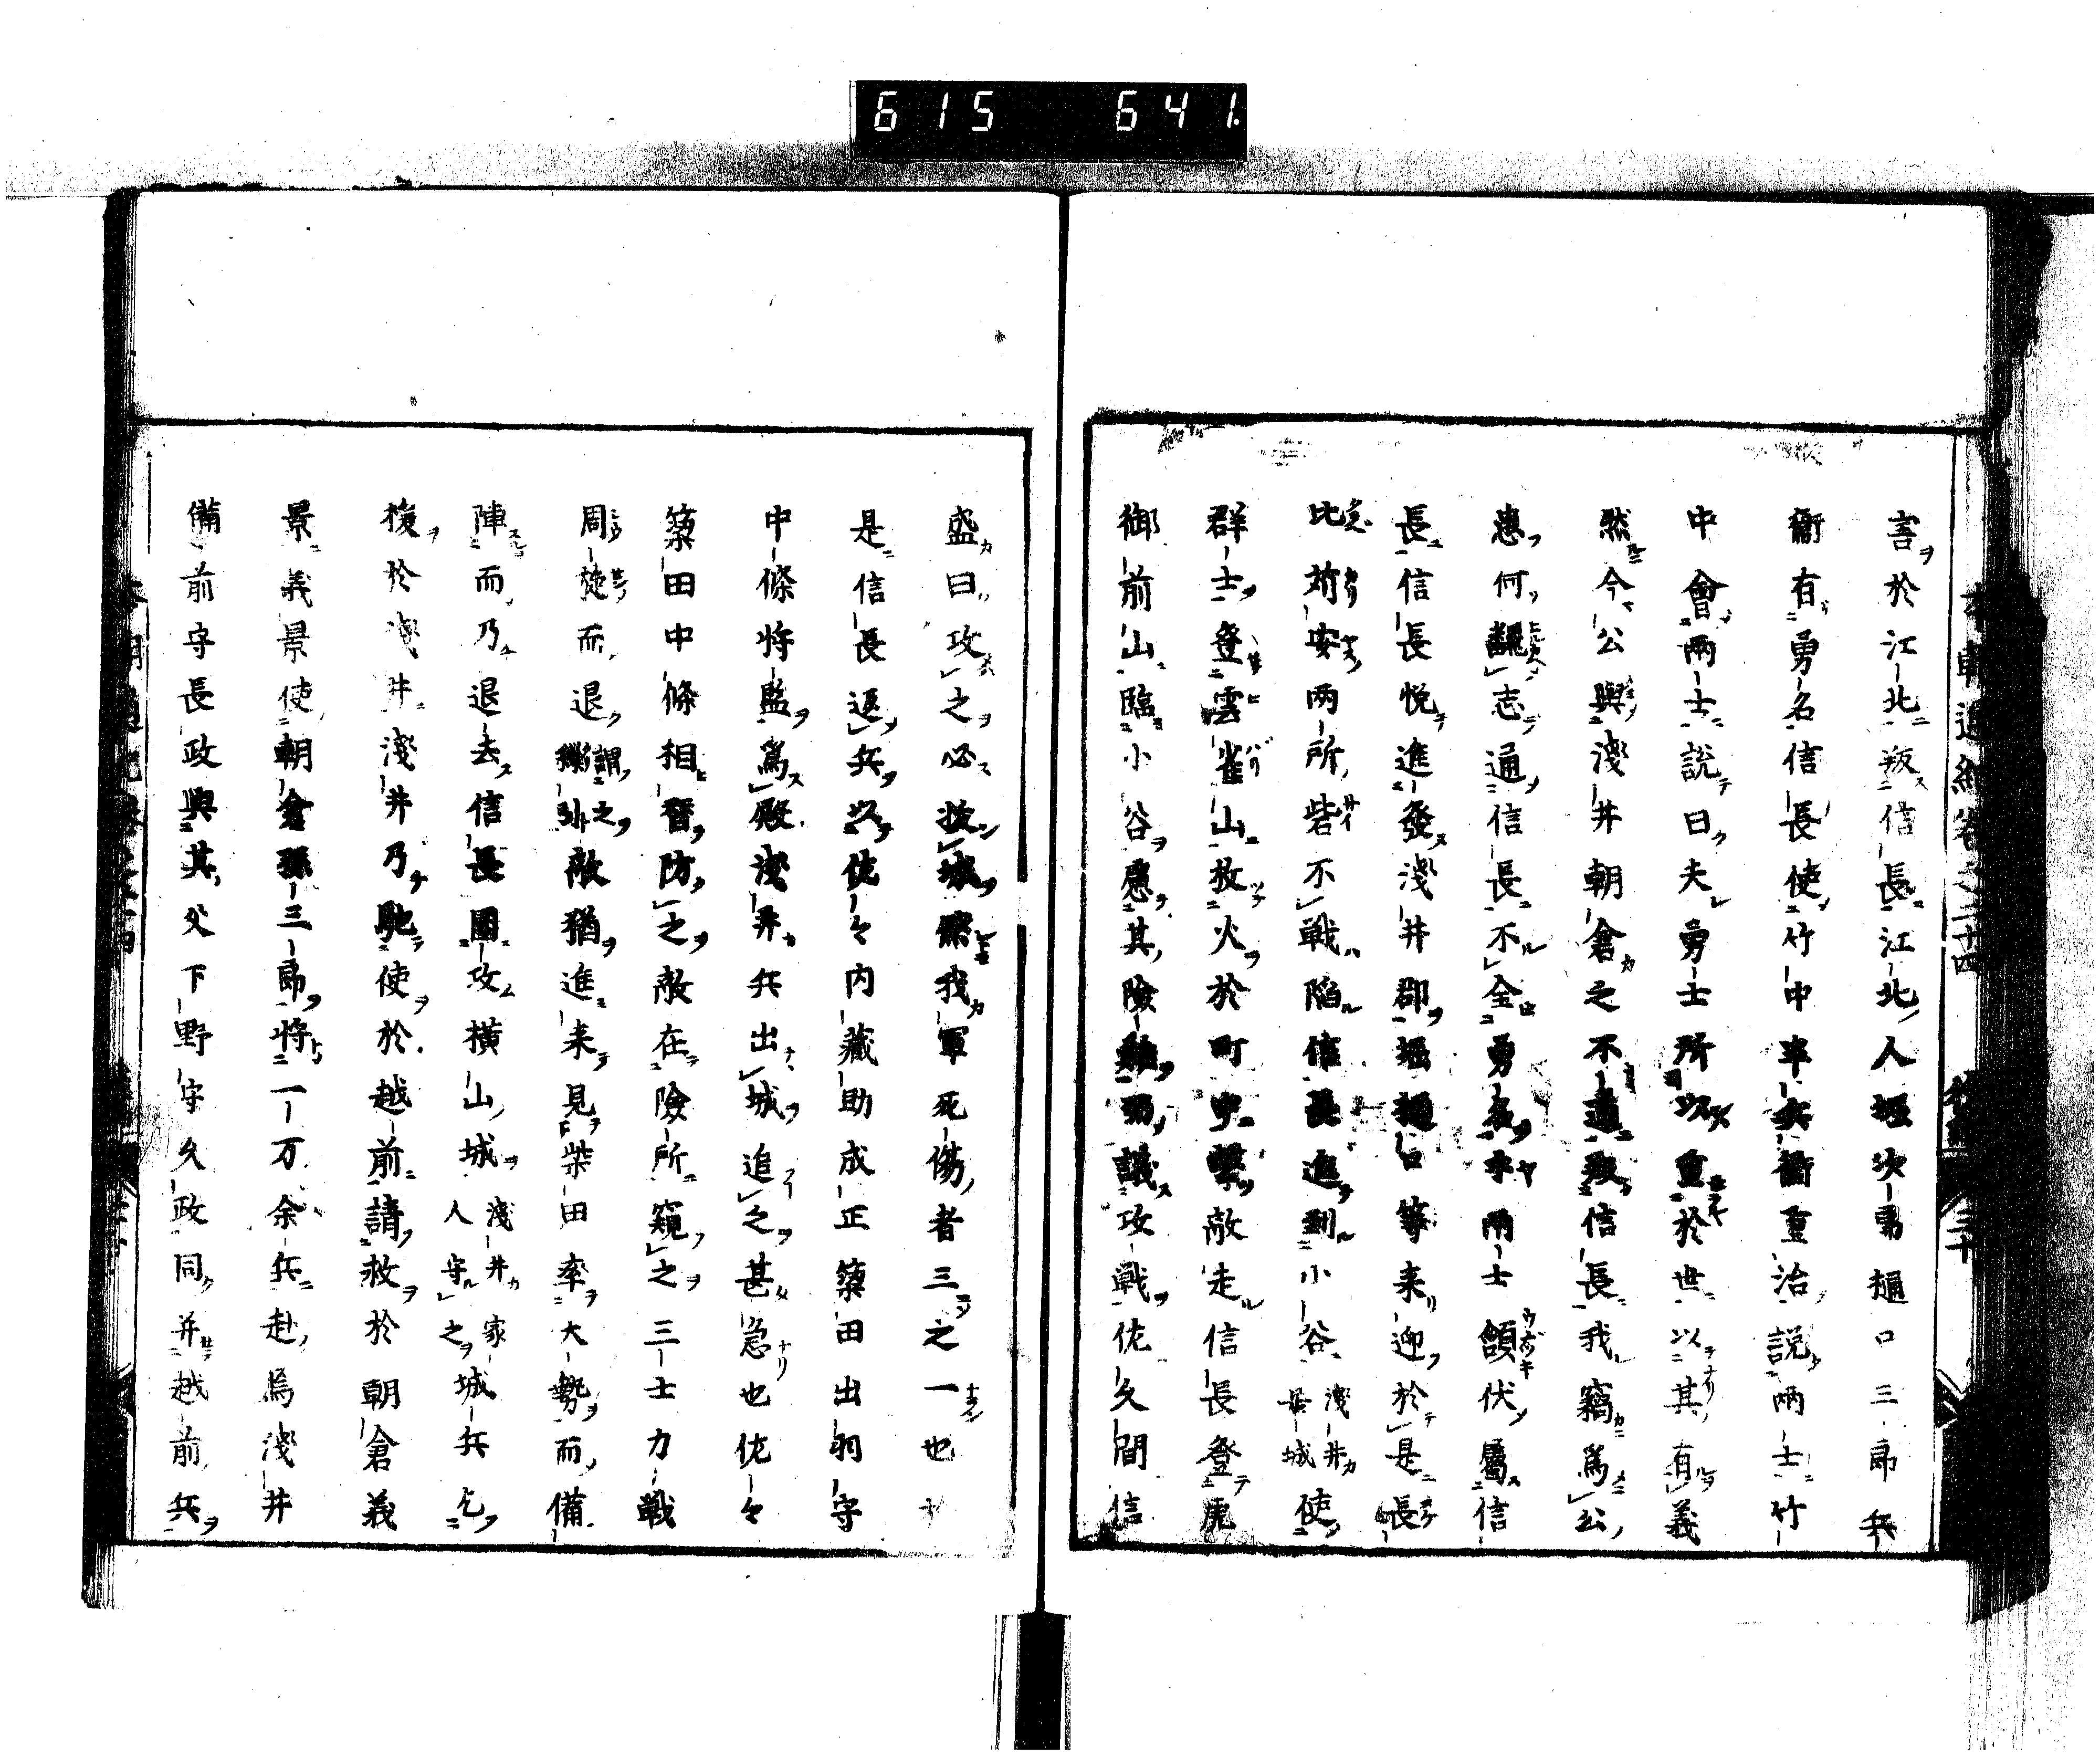 615 641.
害於江北叛信長江北人堀次郎樋口三郎兵
衞有勇名信長使竹中半兵衞重治説兩士竹
中會兩士説曰夫勇士所以重於世以其有義
然今公與淺井朝倉之不道叛信長我竊爲公
患何飜志通信長不全勇名乎兩士頷伏屬信
長信長悦進發淺井郡堀樋口等来迎於是長
比苅安両所砦不戦陥信長進到小谷淺井居城使
群士登雲雀山放火於町中擊敵走信長登虎
御前山臨小谷慮其險難而議攻戦佐久間信
盛曰攻之必抜城然我軍死傷者三之一也
是信長退兵以佐々内藏助成正簗田出羽守
中條将監爲殿淺井兵出城追之甚急也佐々
簗田中條相替防之敵在險所窺之三士力戦
周旋而退謂之繰引敵猶進来見柴田率大勢而備
陣而乃退去信長圍攻横山城淺井家人守之城兵乞
援於淺井淺井乃馳使於越前請救於朝倉義
景義景使朝倉孫三郎将一万余兵赴爲淺井
備前守長政與其父下野守久政同并越前兵